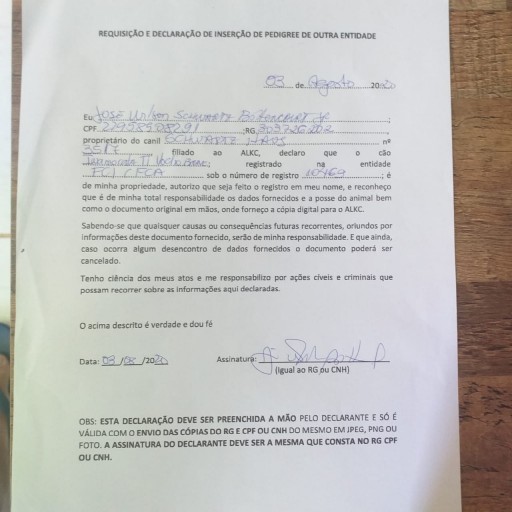 REQUISIÇÃO E DECLARAÇÃO DE INSERÇÃO DE PEDIGREE DE OUTRA ENTIDADE
03 de Agosto 2020
Eu JOSÉ Wilson SCHWARTZ BITENCOURT Jr ;
CPF ;RG ,
proprietário do canil SCHWARTZ HAUS nº
3517 filiado ao ALKC, declaro que o cão
registrado na entidade
FCI / FCA sob o número de registro 10469 ; é
de minha propriedade, autorizo que seja feito o registro em meu nome, e reconheço
que é de minha total responsabilidade os dados fornecidos e a posse do animal bem
como o documento original em mãos, onde forneço a cópia digital para o ALKC.
Sabendo-se que quaisquer causas ou consequências futuras recorrentes, oriundos por
informações deste documento fornecido, serão de minha responsabilidade. E que ainda,
caso ocorra algum desencontro de dados fornecidos o documento poderá ser
cancelado.
Tenho ciência dos meus atos e me responsabilizo por ações cíveis e criminais que
possam recorrer sobre as informações aqui declaradas.
O acima descrito é verdade e dou fé
Data: 03 /08 /2020 Assinatura:
(Igual ao RG ou CNH)
OBS: ESTA DECLARAÇÃO DEVE SER PREENCHIDA A MÃO PELO DECLARANTE E SÓ É
VÁLIDA COM O ENVIO DAS CÓPIAS DO RG E CPF OU CNH DO MESMO EM JPEG, PNG OU
FOTO. A ASSINATURA DO DECLARANTE DEVE SER A MESMA QUE CONSTA NO RG CPF
OU CNH.